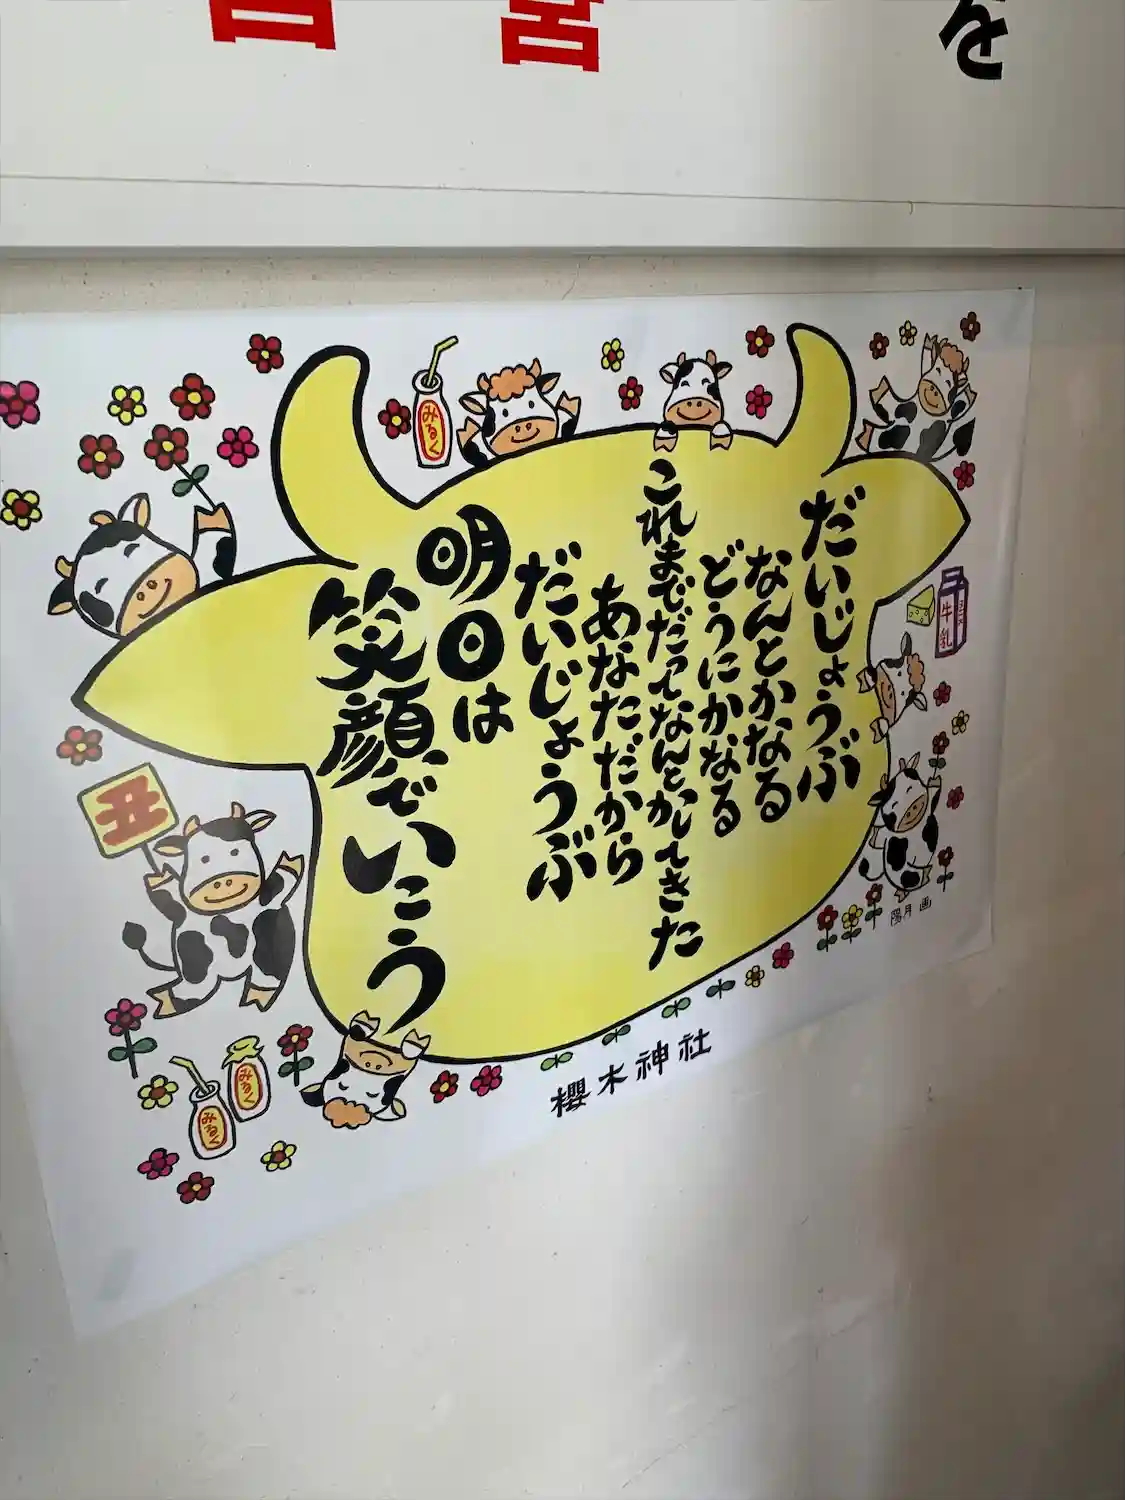 を
宮
みるく
だいじょうぶ
なんとかなる
どうにかなる
これまでだってなんとかしてきた
あなただから
だいじょうぶ
明日は
笑顔でいこう
牛乳
丑
みるく
みるく
陽月画
櫻木神社